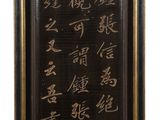 鍾張信為絕
觀可謂鍾張
繼之又云吾